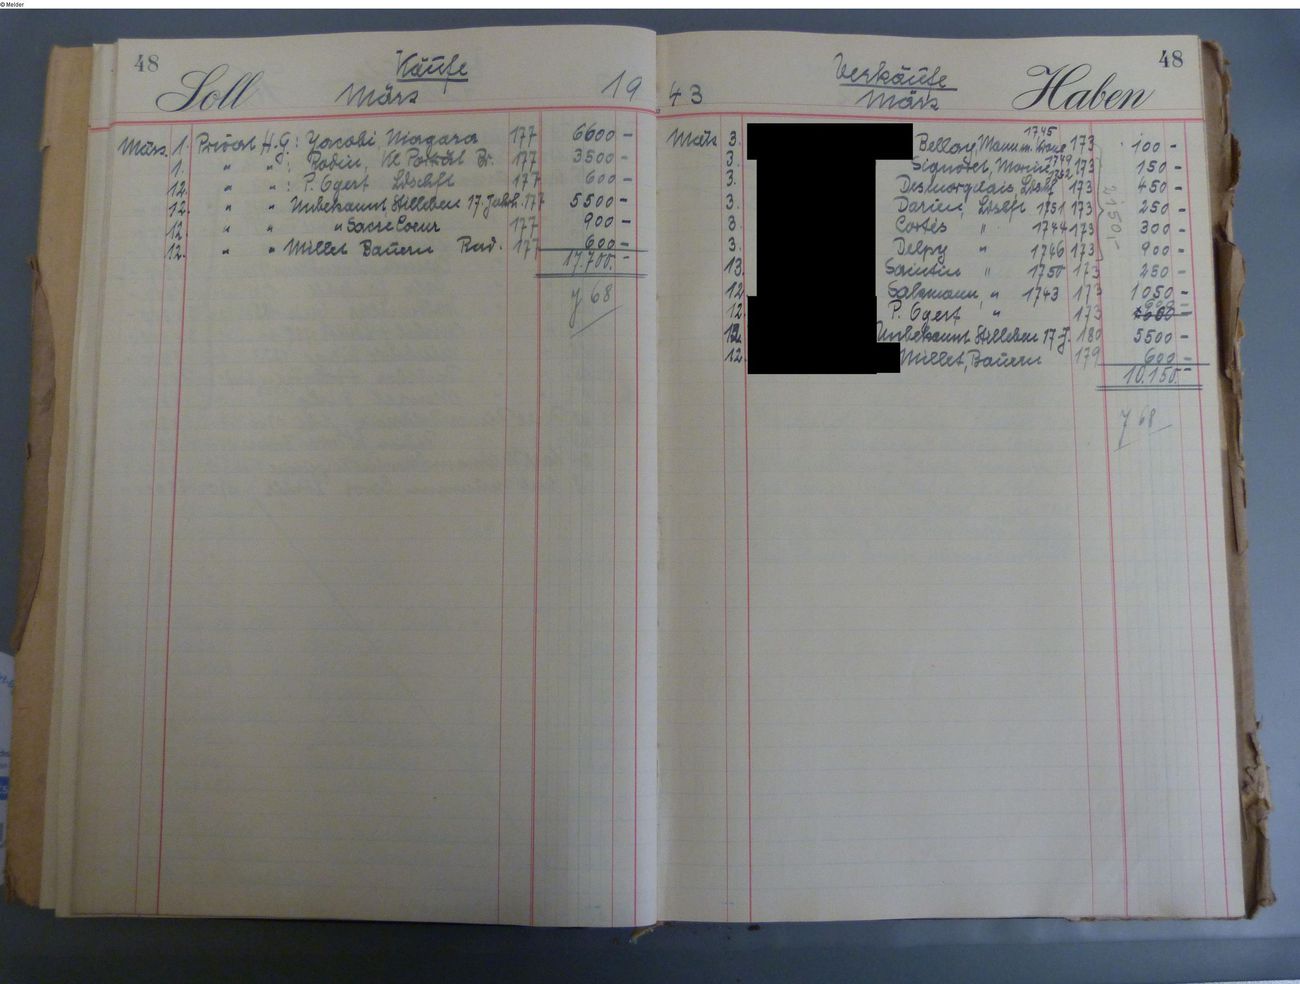 © Melder
48
Käufe
Soll
März
19
März. 1. Privat H.G.: Jacobi, Niagara 177 6600 -
1. " " : Rodin, Kl. Porträt Br. 177 3500 -
12. " " : P. Egert Ldschft 177 600 -
12. " " Unbekannt Stilleben 17. Jahrh. 177 5500 -
12. " " " Sacre Coeur 177 900 -
12. " " Millet Bauern Rad. 177 600 -
17.700. -
J 68
48
Verkäufe
43
März
Haben
März 3. Bellory, Mann m. 1745 173 100 -
3. Signoret, Marine 1749 173 150 -
3. Desmorgelais, Ldschf 1742 173 450 -
3. Darien, Ldschft 1751 173 250 -
3. Cortès " 1744 173 300 -
3. Delpy " 1746 173 900 -
2150,-
13. Saintin " 1750 173 250 -
12. Salzmann, " 1743 173 1050 -
12. P. Egert " 173 600 -
12. Unbekannt Stilleben 17. J. 180 5500 -
12. Millet, Bauern 179 600 -
10.150. -
J 68